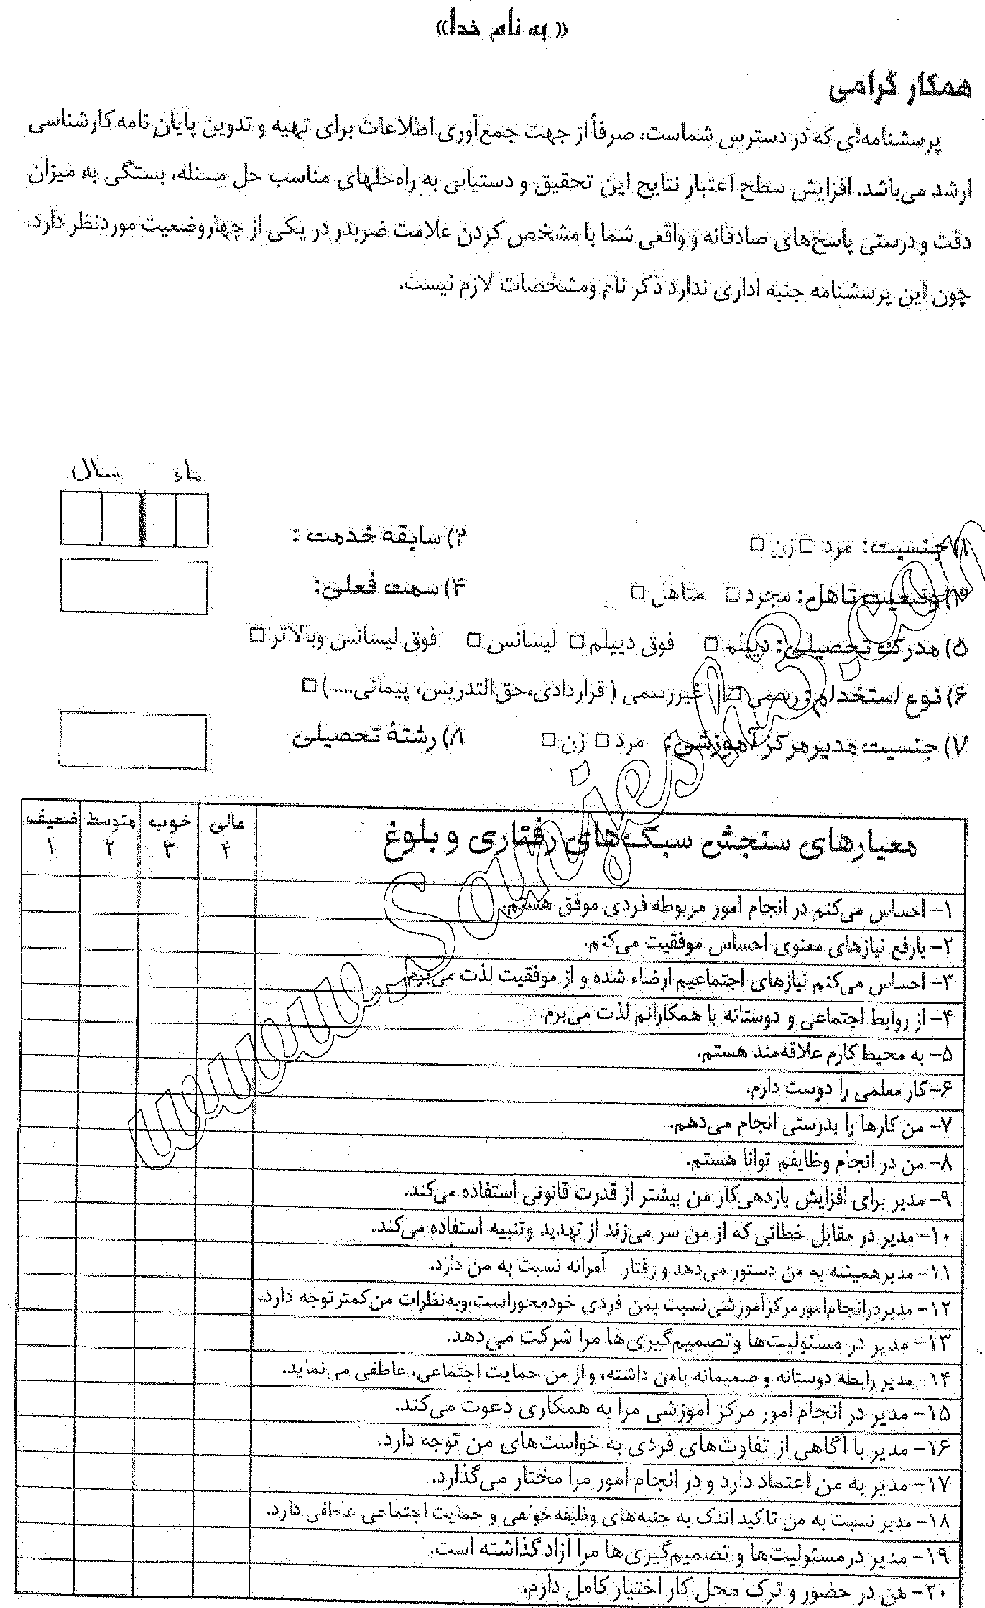 « به نام خدا»
همکار گرامی
پرسشنامه‌ای که در دسترس شماست، صرفاً از جهت جمع‌آوری اطلاعات برای تهیه و تدوین پایان نامه کارشناسی
ارشد می‌باشد. افزایش سطح اعتبار نتایج این تحقیق و دستیابی به راه‌حلهای مناسب حل مسئله، بستگی به میزان
دقت و درستی پاسخ‌های صادقانه و واقعی شما با مشخص کردن علامت ضربدر در یکی از چهار وضعیت موردنظر دارد.
چون این پرسشنامه جنبه اداری ندارد ذکر نام ومشخصات لازم نیست.
ماه سال
۱) جنسیت: مرد □ زن □ ۲) سابقه خدمت :
۳) وضعیت تاهل: مجرد □ متاهل □ ۴) سمت فعلی:
۵) مدرک تحصیلی: دیپلم □ فوق دیپلم □ لیسانس □ فوق لیسانس وبالاتر □
۶) نوع استخدام: رسمی □ غیررسمی ( قراردادی، حق‌التدریس، پیمانی....) □
۷) جنسیت مدیر مرکز آموزشی: مرد □ زن □ ۸) رشتهٔ تحصیلی
معیارهای سنجش سبک‌های رفتاری و بلوغ عالی ۴ خوب ۳ متوسط ۲ ضعیف ۱
۱- احساس می‌کنم در انجام امور مربوطه فردی موفق هستم.
۲- بارفع نیازهای معنوی احساس موفقیت می‌کنم.
۳- احساس می‌کنم نیازهای اجتماعیم ارضاء شده و از موفقیت لذت می‌برم.
۴- از روابط اجتماعی و دوستانه با همکارانم لذت می‌برم.
۵- به محیط کارم علاقه‌مند هستم.
۶- کار معلمی را دوست دارم.
۷- من کارها را بدرستی انجام می‌دهم.
۸- من در انجام وظایفم توانا هستم.
۹- مدیر برای افزایش بازدهی‌کار من بیشتر از قدرت قانونی استفاده می‌کند.
۱۰- مدیر در مقابل خطائی که از من سر می‌زند از تهدید وتنبیه استفاده می‌کند.
۱۱- مدیرهمیشه به من دستور می‌دهد و رفتار آمرانه نسبت به من دارد.
۱۲- مدیردرانجام‌امورمرکزآموزشی‌نسبت بمن فردی خودمحوراست،وبه‌نظرات من‌کمترتوجه دارد.
۱۳- مدیر در مسئولیت‌ها وتصمیم‌گیری‌ها مرا شرکت می‌دهد.
۱۴- مدیر رابطه دوستانه و صمیمانه بامن داشته، و از من حمایت اجتماعی، عاطفی می‌نماید.
۱۵- مدیر در انجام امور مرکز آموزشی مرا به همکاری دعوت می‌کند.
۱۶- مدیر با آگاهی از تفاوت‌های فردی به خواست‌های من توجه دارد.
۱۷- مدیر به من اعتماد دارد و در انجام امور مرا مختار می‌گذارد.
۱۸- مدیر نسبت به من تاکید اندک به جنبه‌های وظیفه‌خواهی و حمایت اجتماعی عاطفی دارد.
۱۹- مدیر در مسئولیت‌ها و تصمیم‌گیری‌ها مرا آزاد گذاشته است.
۲۰- من در حضور و ترک محل کار اختیار کامل دارم.
www.Sanjesh3.com